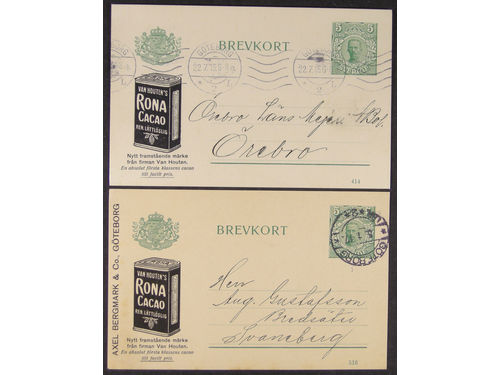 BREVKORT
5
GÖTEBORG
22.7.15
GÖTEBORG
22.7.15
VAN HOUTEN'S
RONA
CACAO
REN. LÄTTLÖSLIG
Nytt framstående märke
från firman Van Houten.
En absolut första klassens cacao
till justit pris.
Örebro Läns Mejeri
Örebro
414
BREVKORT
5
AXEL BERGMARK & Co., GÖTEBORG
VAN HOUTEN'S
RONA
CACAO
REN. LÄTTLÖSLIG
Nytt framstående märke
från firman Van Houten.
En absolut första klassens cacao
till justit pris.
Herr
Aug. Gustafsson
Bredsätiv
Svaneberg
516